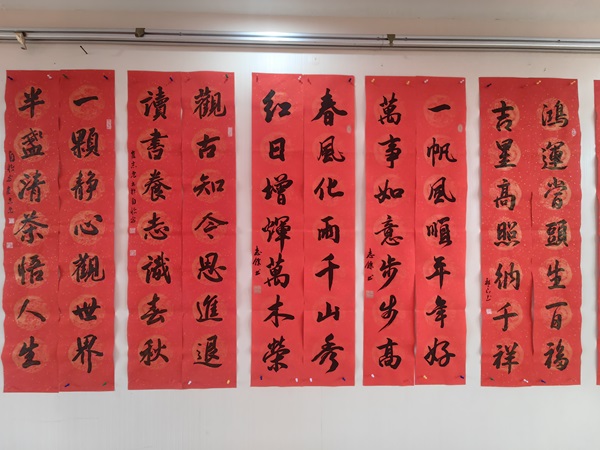 鴻運當頭生百福
吉星高照納千祥
一帆風順年年好
萬事如意步步高
春風化雨千山秀
红日增輝萬木榮
觀古知今思進退
讀書養志識春秋
一顆静心觀世界
半盞清茶悟人生